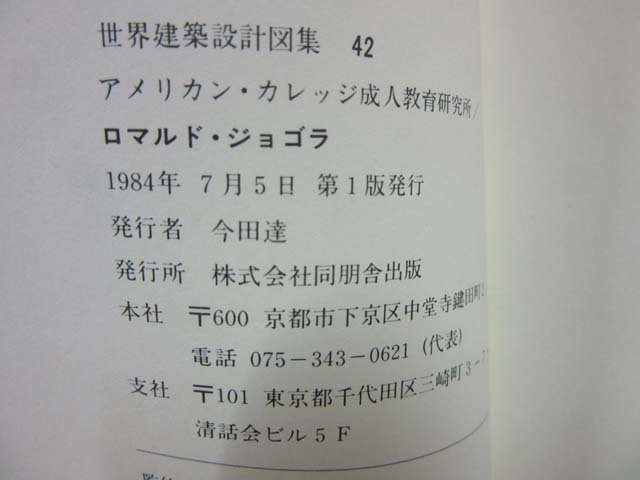 世界建築設計図集 42
アメリカン・カレッジ成人教育研究所/
ロマルド・ジョゴラ
1984年 7月5日 第1版発行
発行者 今田達
発行所 株式会社同朋舎出版
本社 〒600 京都市下京区中堂寺鍵田町2
電話 075-343-0621 (代表)
支社 〒101 東京都千代田区三崎町3-7
清話会ビル5F